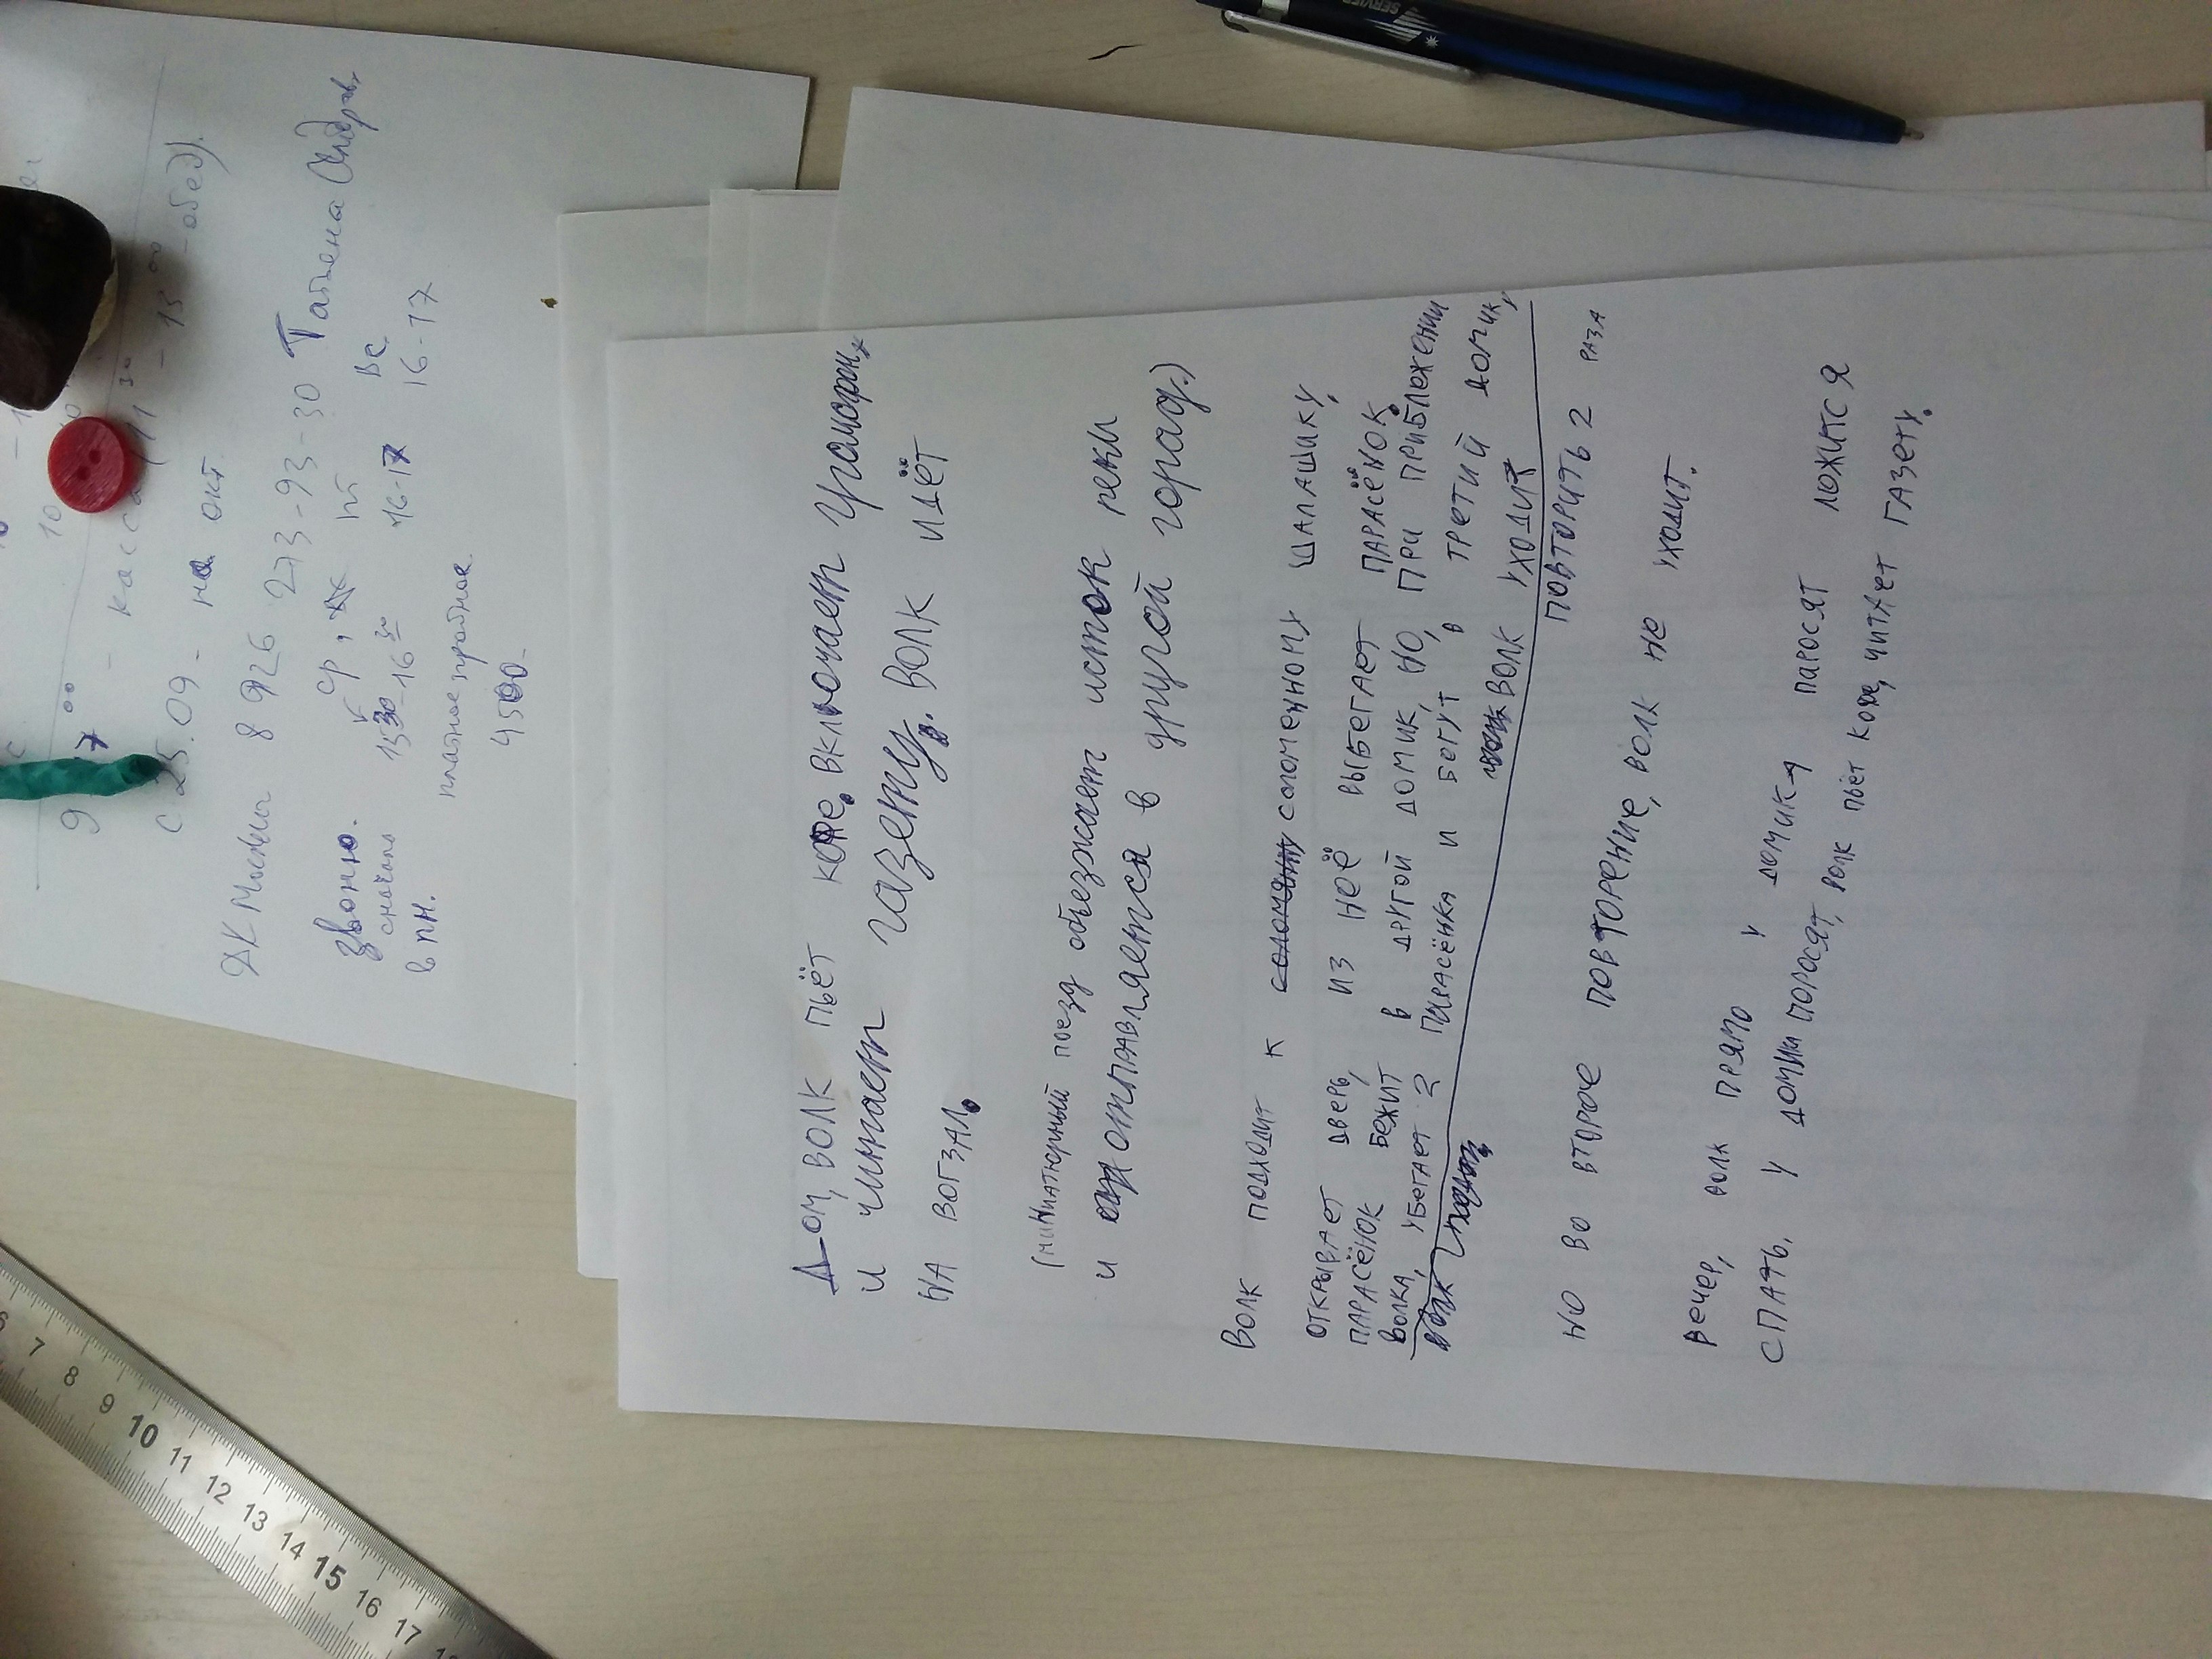 9 00
10
- касса (11 30 - 13 00 - обед).
с 25.09 - на окт.
ДК Москвич 8 926 273-93-30 Татьена
звоню. ср, пт вс
сначало 15 30-16 30 16-17 16-17
в пн.
платное пробное
4500-
Дом, волк пьёт кофе. включает граммофон,
и читает газету. волк идёт
на вогзал.
(миниатюрный поезд объезжает исток реки
и отправляется в другой горад.)
Волк подходит к соломенному шалашику,
открывает дверь, из неё выбегает парасёнок.
парасёнок бежит в другой домик, но, при приближении
волка, убегает 2 парасёнка и бегут в третий домик,
волк волк уходит
повторить 2 раза
но во второе повторение, волк не уходит.
вечер, волк прямо у домика паросят ложится
спать. у домика поросят, волк пьёт кофе, читает газету.
SERVIER
6 7 8 9 10 11 12 13 14 15 16 17